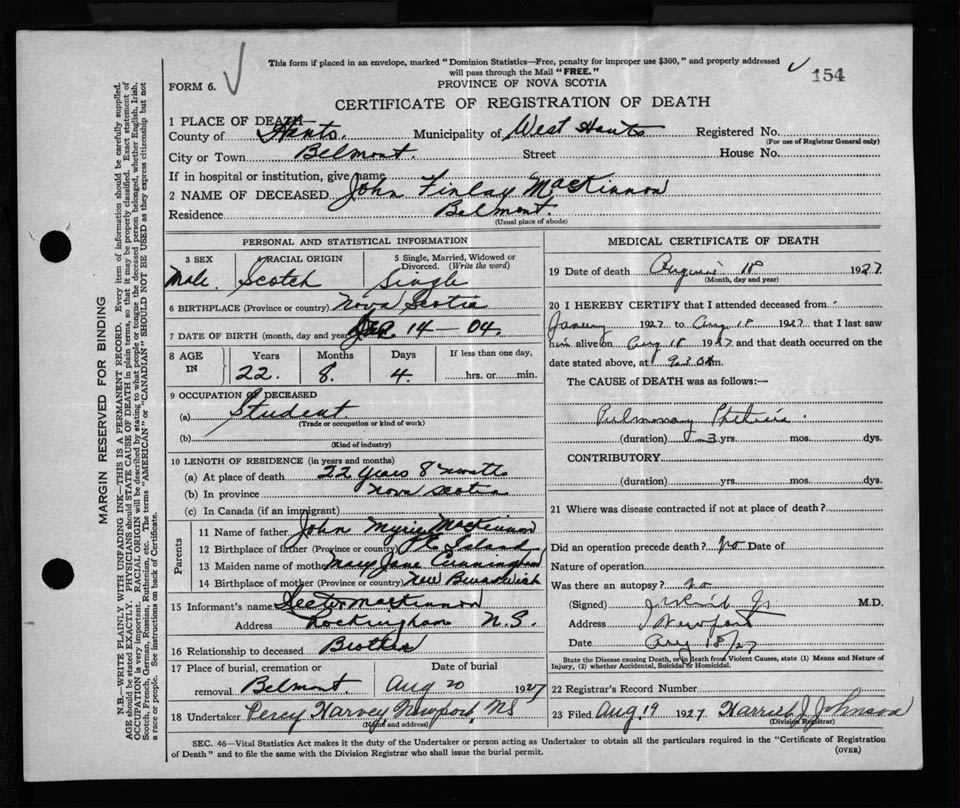 This form if placed in an envelope, marked "Dominion Statistics—Free, penalty for improper use $300," and properly addressed
will pass through the Mail "FREE."
154
FORM 6.
PROVINCE OF NOVA SCOTIA
CERTIFICATE OF REGISTRATION OF DEATH
1 PLACE OF DEATH—
County of Hants. Municipality of West Hants Registered No.
(For use of Registrar General only)
City or Town Belmont. Street House No.
If in hospital or institution, give name
2 NAME OF DECEASED John Finlay MacKinnon
Residence Belmont.
(Usual place of abode)
PERSONAL AND STATISTICAL INFORMATION
3 SEX 4 RACIAL ORIGIN 5 Single, Married, Widowed or Divorced. (Write the word)
Male. Scotch Single
6 BIRTHPLACE (Province or country) Nova Scotia
7 DATE OF BIRTH (month, day and year) 14—04.
8 AGE IN Years Months Days If less than one day,
22. 8. 4. hrs. or min.
9 OCCUPATION OF DECEASED
(a) Student.
(Trade or occupation or kind of work)
(b)
(Kind of industry)
10 LENGTH OF RESIDENCE (in years and months)
(a) At place of death 22 years 8 months
(b) In province Nova Scotia
(c) In Canada (if an immigrant)
Parents
11 Name of father John MacKinnon
12 Birthplace of father (Province or country) P.E. Island
13 Maiden name of mother Mary Jane Cunningham
14 Birthplace of mother (Province or country) New Brunswick
15 Informant's name MacKinnon
Address Rockingham N.S.
16 Relationship to deceased Brother
17 Place of burial, cremation or removal Belmont. Date of burial Aug 20 1927
18 Undertaker Percy Harvey Newport, NS
(Name and address)
MEDICAL CERTIFICATE OF DEATH
19 Date of death August 18 1927
(Month, day and year)
20 I HEREBY CERTIFY that I attended deceased from
January 1927 to Aug 18 1927 that I last saw
him alive on Aug 18 1927 and that death occurred on the
date stated above, at m.
The CAUSE of DEATH was as follows:—
Pulmonary Phthisis
(duration) 3 yrs. mos. dys.
CONTRIBUTORY
(duration) yrs. mos. dys.
21 Where was disease contracted if not at place of death?
Did an operation precede death? No Date of
Nature of operation
Was there an autopsy? no
(Signed) M.D.
Address Newport
Date Aug 18/27
State the Disease causing Death, or in death from Violent Causes, state (1) Means and Nature of
Injury, (2) whether Accidental, Suicidal or Homicidal.
22 Registrar's Record Number
23 Filed Aug. 19 1927 Harriet J Johnson
(Division Registrar)
SEC. 46—Vital Statistics Act makes it the duty of the Undertaker or person acting as Undertaker to obtain all the particulars required in the "Certificate of Registration
of Death" and to file the same with the Division Registrar who shall issue the burial permit.
(OVER)
MARGIN RESERVED FOR BINDING
N.B.—WRITE PLAINLY WITH UNFADING INK—THIS IS A PERMANENT RECORD. Every item of information should be carefully supplied.
AGE should be stated EXACTLY. PHYSICIANS should STATE CAUSE OF DEATH in plain terms, so that it may be properly classified. Exact statement of
OCCUPATION is very important. RACIAL ORIGIN will be described by stating to what people or tongue the deceased person belonged, whether English, Irish,
Scotch, French, German, Russian, Ruthenian, etc. The terms "AMERICAN" or "CANADIAN" SHOULD NOT BE USED as they express citizenship but not
a race or people. See instructions on back of Certificate.